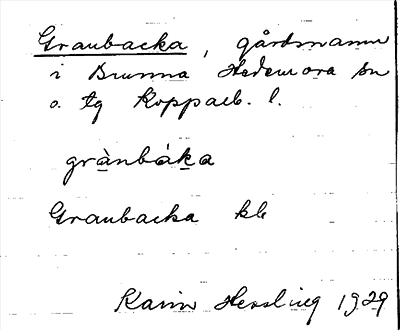 Graubacka, gårdsnamn
i Brunna Hedemora sn
o. tg Kopparb. l.
grànbáka
Graubacka kb
Karin Hessling 1929